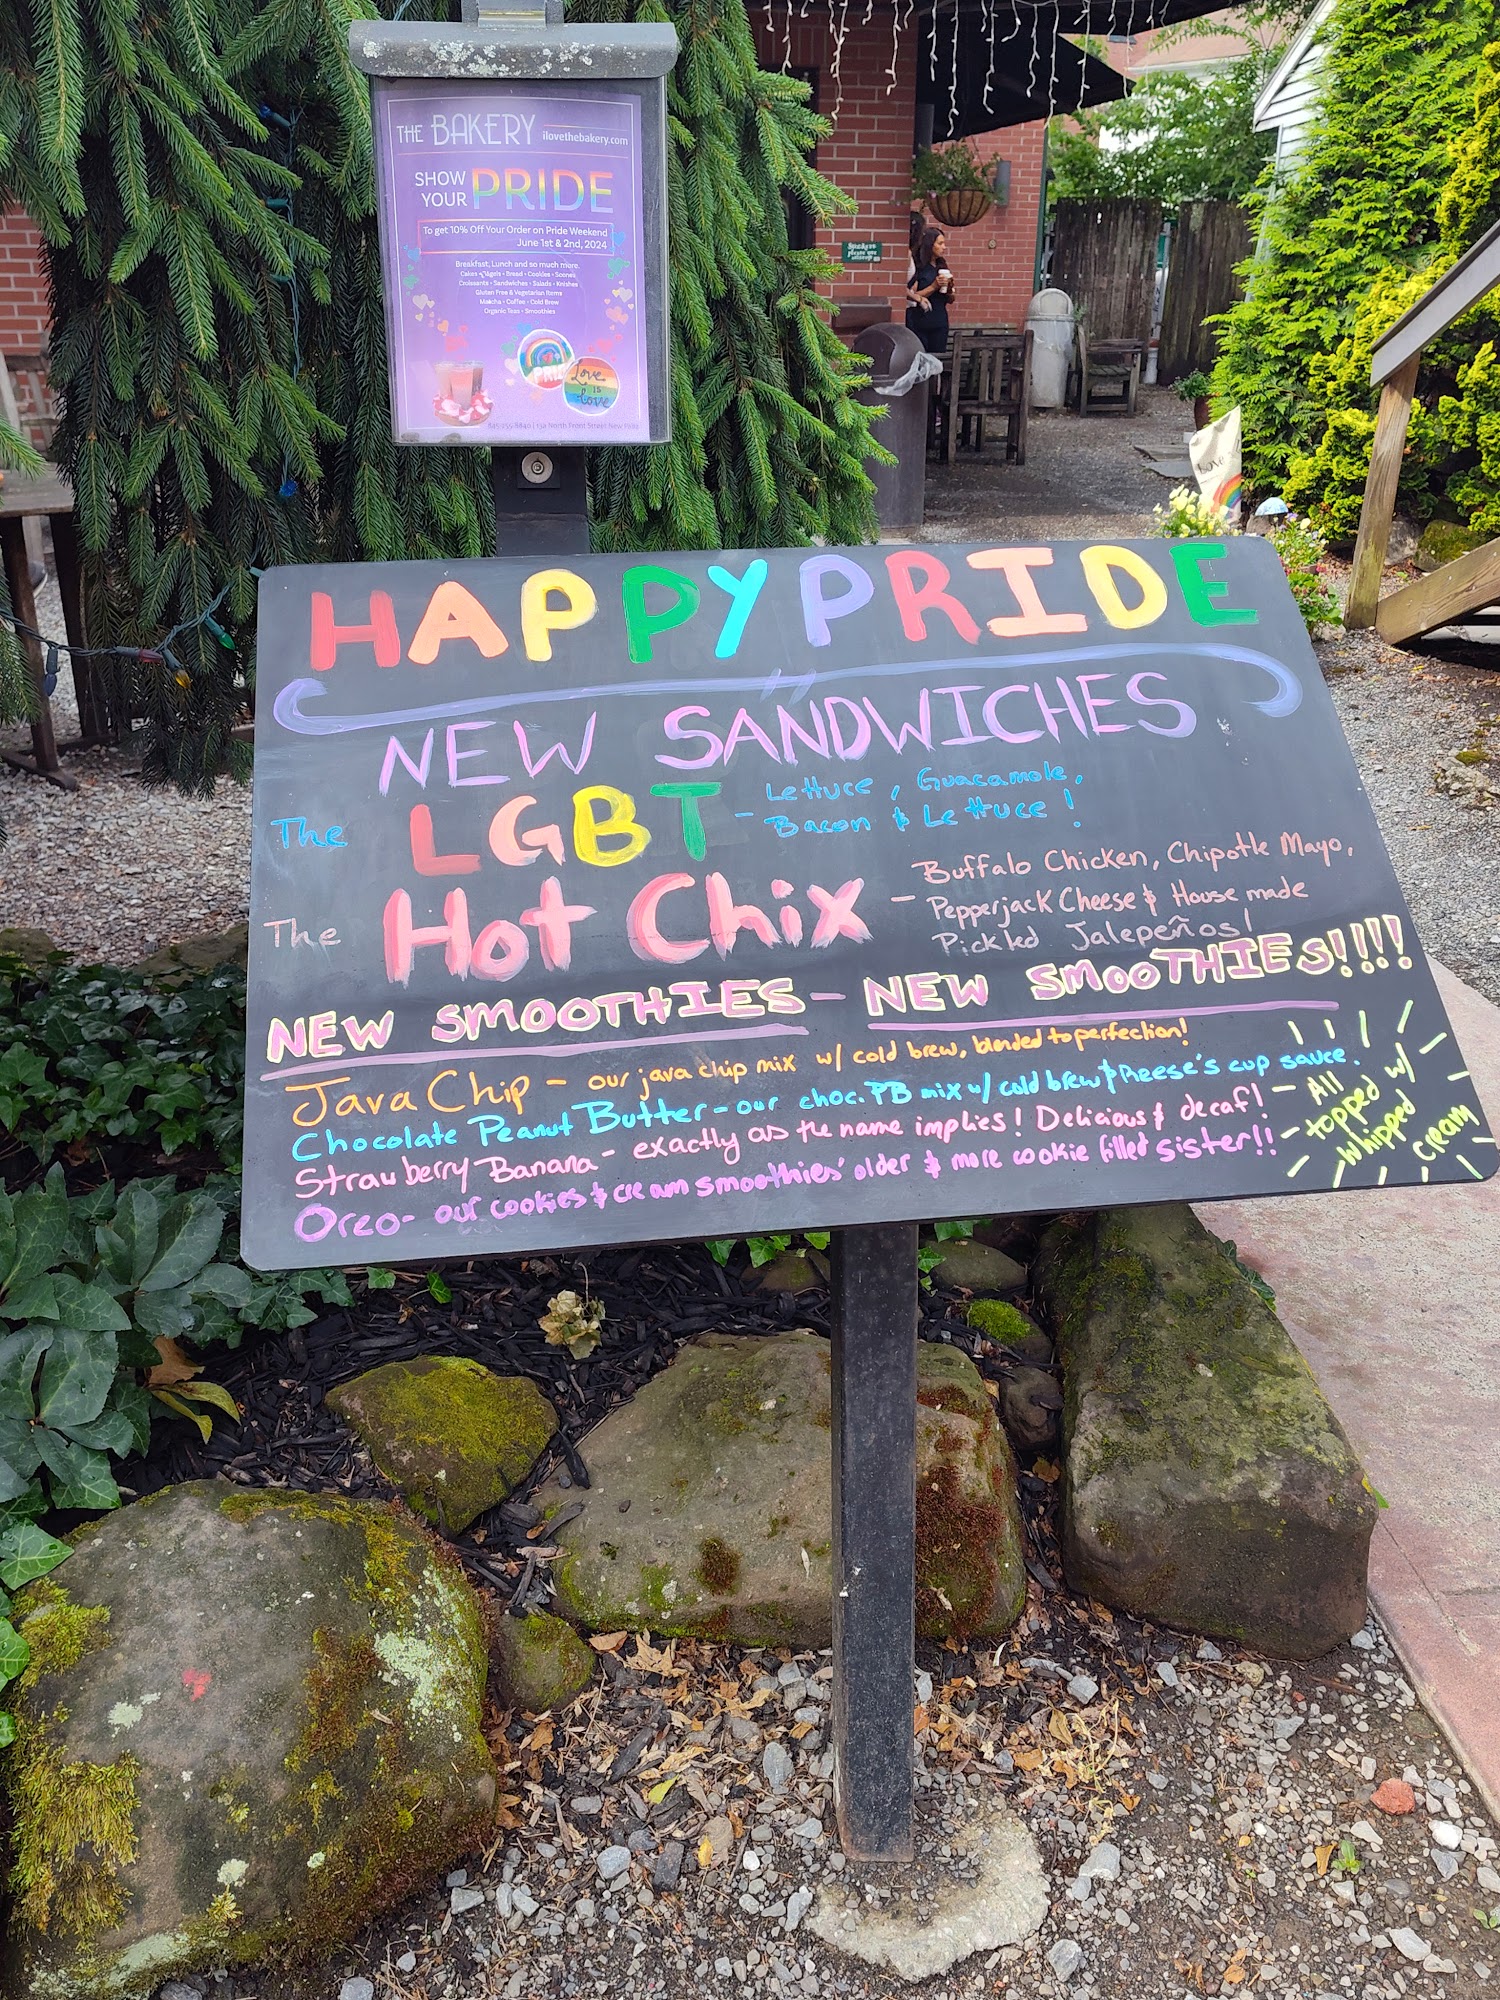 THE BAKERY ilovethebakery.com
SHOW YOUR PRIDE
To get 10% Off Your Order on Pride Weekend
June 1st & 2nd, 2024
Breakfast, Lunch and so much more.
Cakes • Bagels • Bread • Cookies • Scones
Croissants • Sandwiches • Salads • Knishes
Gluten Free & Vegetarian Items
Matcha • Coffee • Cold Brew
Organic Teas • Smoothies
Love
is
Love
845-255-8840 | 13a North Front Street New Paltz
HAPPY PRIDE
NEW SANDWICHES
The LGBT - Lettuce, Guacamole,
Bacon & Lettuce!
The Hot Chix - Buffalo Chicken, Chipotle Mayo,
Pepperjack Cheese & House made
Pickled Jalepeños!
NEW SMOOTHIES - NEW SMOOTHIES!!!!
Java Chip - our java chip mix w/ cold brew, blended to perfection!
Chocolate Peanut Butter - our choc. PB mix w/ cold brew & Reese's cup sauce.
Strawberry Banana - exactly as the name implies! Delicious & decaf!
Oreo - our cookies & cream smoothies' older & more cookie filled sister!!
- All
topped w/
whipped
cream